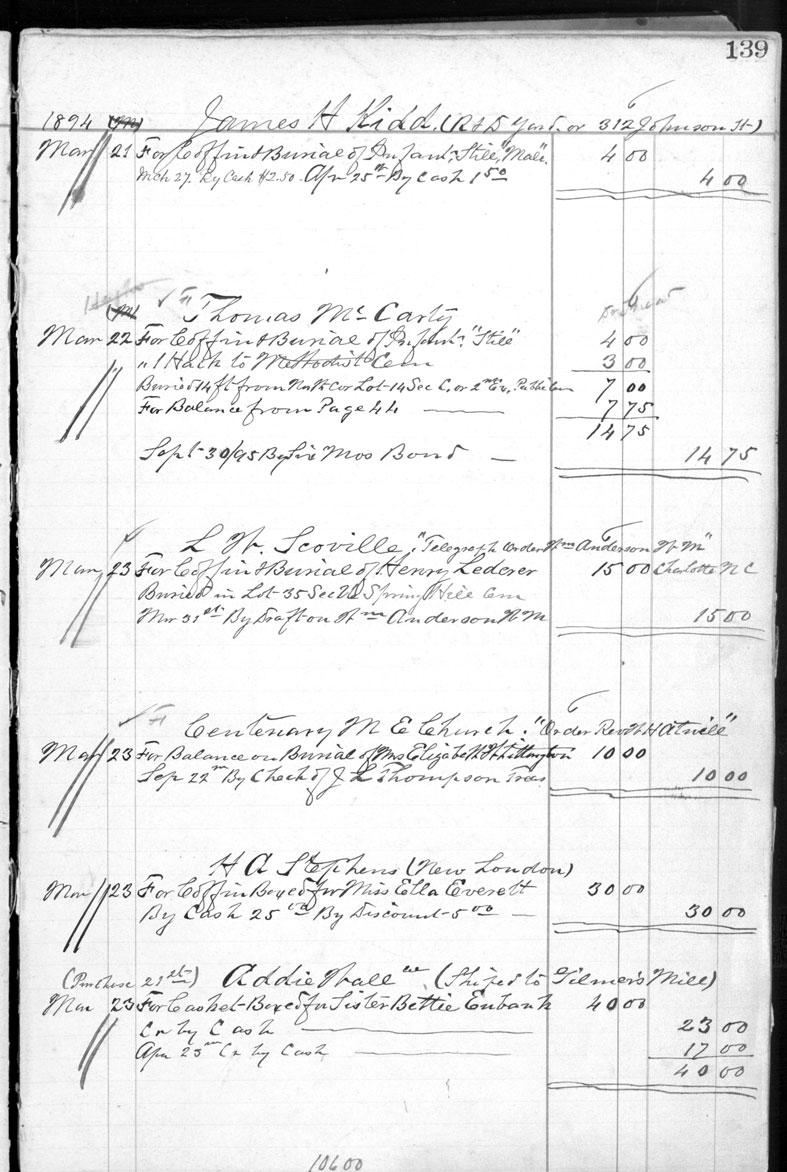 139
1894 (M) James H Kidd. (R & D Yard. or 312 Johnson St)
Mar 21 For Coffin & Burial of Infant, "Still" "Male". 4 00
Mch 27. By Cash $2.50. Apr 25th By Cash 1 50 4 00
(M) Thomas Mc Carty
Mar 22 For Coffin & Burial of Infant. "Still" 4 00
" 1 Hack to Methodist Cem 3 00
Buried 14 ft from North Cor Lot 14 Sec C. or 2nd Ex, Public Cem 7 00
For Balance from Page 44 7 75
14 75
Sept 30/95 By Six Mos Bond 14 75
L W. Scoville, "Telegraph Order Wm Anderson W M"
Mar 23 For Coffin & Burial of Henry Lederer 15 00 Charlotte N C
Buried in Lot 35 Sec Spring Hill Cem
Mar 31st By Draft on Wm Anderson W M 15 00
Centenary M E Church. "Order Rev W H Atwill"
Mar 23 For Balance on Burial of Mrs Elizabeth Whittington 10 00
Sep 22nd By Check of J L Thompson Treas 10 00
H A Stephens (New London)
Mar 23 For Coffin Boxed for Miss Ella Everett 30 00
By Cash 25 00 By Discount 5 00 30 00
(Purchase 21st) Addie Wall (Shiped to Gilmer's Mill)
Mar 23 For Casket Boxed for Sister Bettie Eubank 40 00
Cr by Cash 23 00
Apr 23rd Cr by Cash 17 00
40 00
106 00